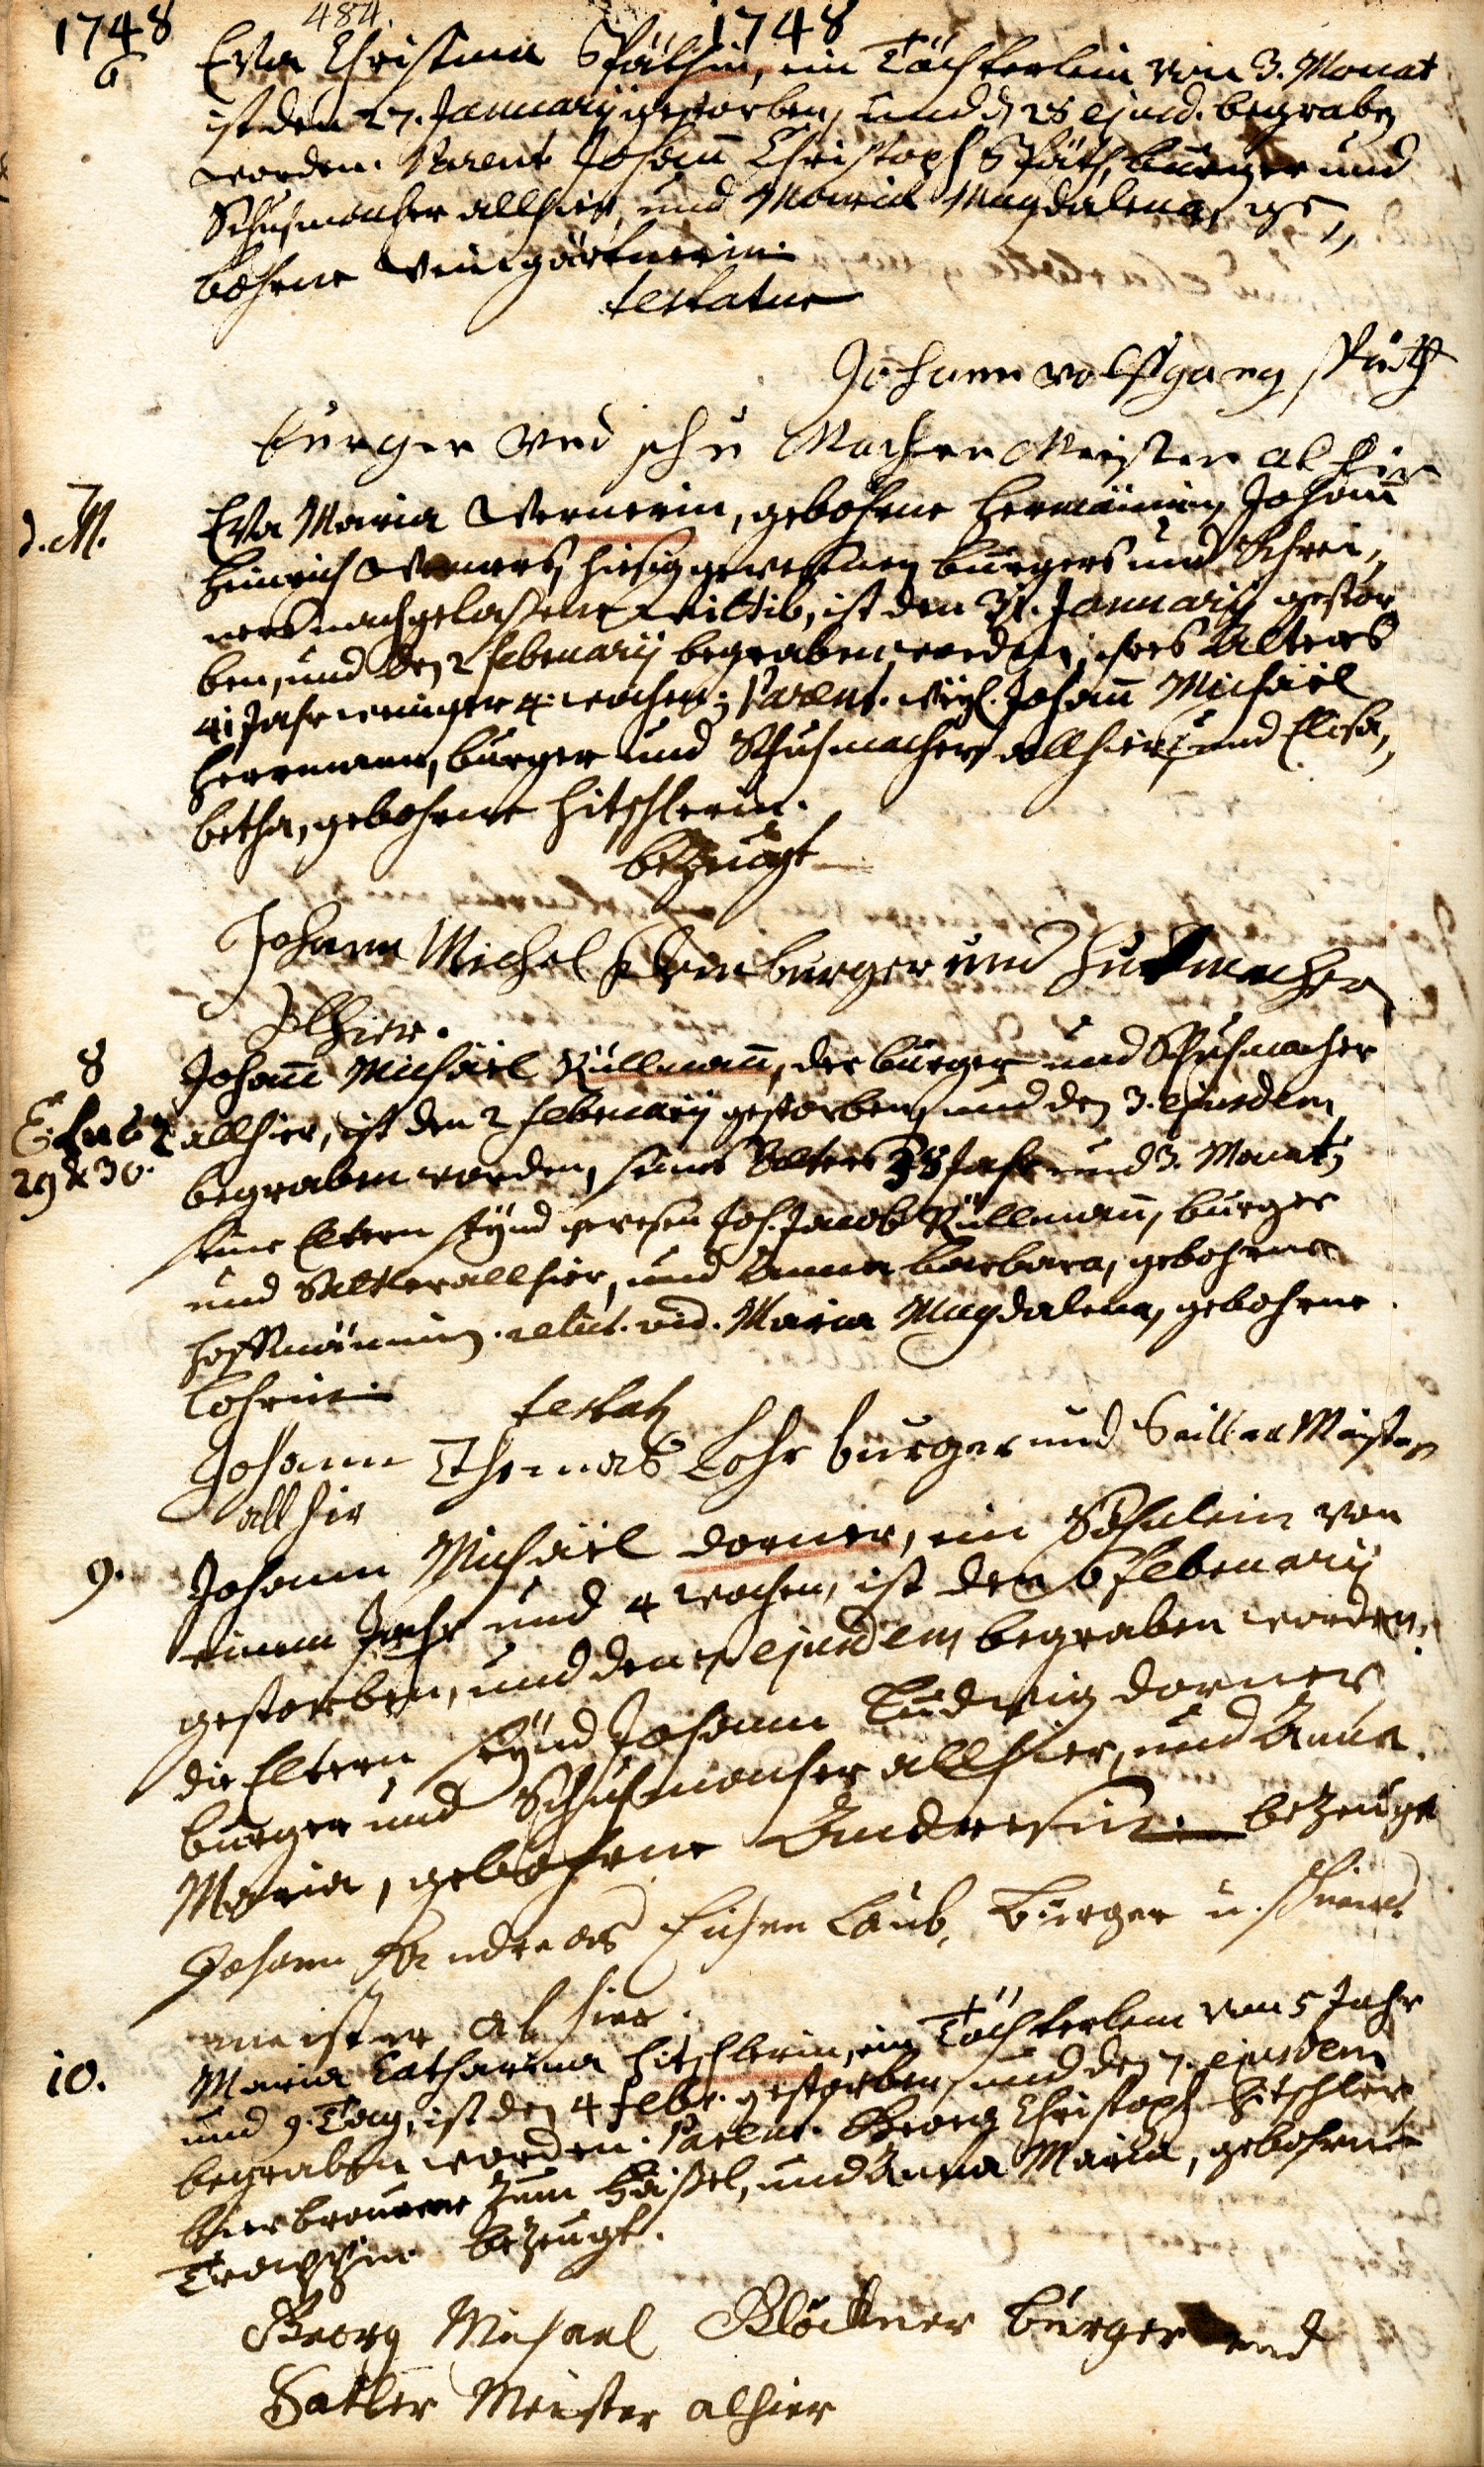 1748 484. 1748
6 Eva Christina Späthin, ein Töchterlein von 3. Monat
ist den 27. Januarij gestorben, und d. 28 ejusd. begraben
worden. Parent. Johann Christoph Späth, burger und
Schuhmacher allhier, und Maria Magdalena, ge„
bohrne Weingärtnerin.
testatur
Johann wolffgang späth
burger vnd schu Macher Meister al hier
d. M. Eva Maria Wernerin, gebohrne Hermännin, Johann
Heinrich Werners, hiesig gewesenen burgers und Schrei„
ners nachgelassene Wittib, ist den 31. Januarij gestor
ben, und den 2 Februarij begraben worden, ihres Alters
41 Jahr weniger 4 wochen; Parent. weyl. Johann Michäel
Herrmann, burger und Schuhmacher allhier, und Elisa„
betha, gebohrne Hitschlerin.
bezeugt
Johann Michel burger und Hutmacher
alhier.
8 Johann Michäel Küllmann, der burger und Schuhmacher
E. Luc 2 allhier, ist den 2 Februarij gestorben, und den 3. ejusdem
29 & 30. begraben worden, seines Alters 38 Jahr und 3. Monat;
seine Eltern seynd gewesen Joh. Jacob Küllmann, burger
und Sattler allhier, und Anna barbara, gebohrne
Hoffmännin. relict. vid. Maria Magdalena, gebohrne
Lohrin.
testat
Johann Thomas Lohr burger und Meister
all hier
9. Johann Michäel dorner, ein Söhnlein von
einem Jahr und 4 wochen, ist den 6 Februarij
gestorben, und den 7 ejusdem begraben worden.
die Eltern seynd Johann Ludwig dorner,
burger und Schuhmacher allhier, und Anna
Maria, gebohrne Andresin. bezeugt
Johann Andreas Eichen Laub, Burger u.
meister al hier.
10. Maria Catharina Hitschlerin, ein Töchterlein von 5 Jahr
und 9. Tag, ist den 4 Febr. gestorben, und den 7. ejusdem
begraben worden. Parent. Georg Christoph Hitschler,
bierbrauer zum und Anna Maria, gebohrne
bezeugt.
Georg Michael Glöckner burger und
Satler Meister alhier